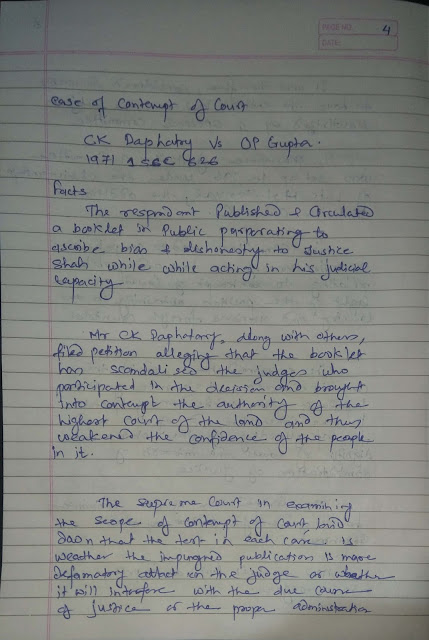 PAGE NO. 4
DATE:
Case of Contempt of Court
C.K Daphatry Vs OP Gupta.
1971 1 SCC 626
Facts
The respondant Published & Circulated
a booklet in Public purporating to
ascribe bias & dishonesty to Justice
Shah while while acting in his judicial
capacity
Mr CK Daphatary, along with others,
filed petition alleging that the booklet
has scandalised the judges who
participated in the decision and brought
into contempt the authority of the
highest court of the land and thus
weakened the confidence of the people
in it.
The Supreme Court in examining
the scope of contempt of court laid
down that the test in each case is
weather the impungned publication is mare
defamatory attack on the judge or wheather
it will interfere with the due course
of justice or the proper administration